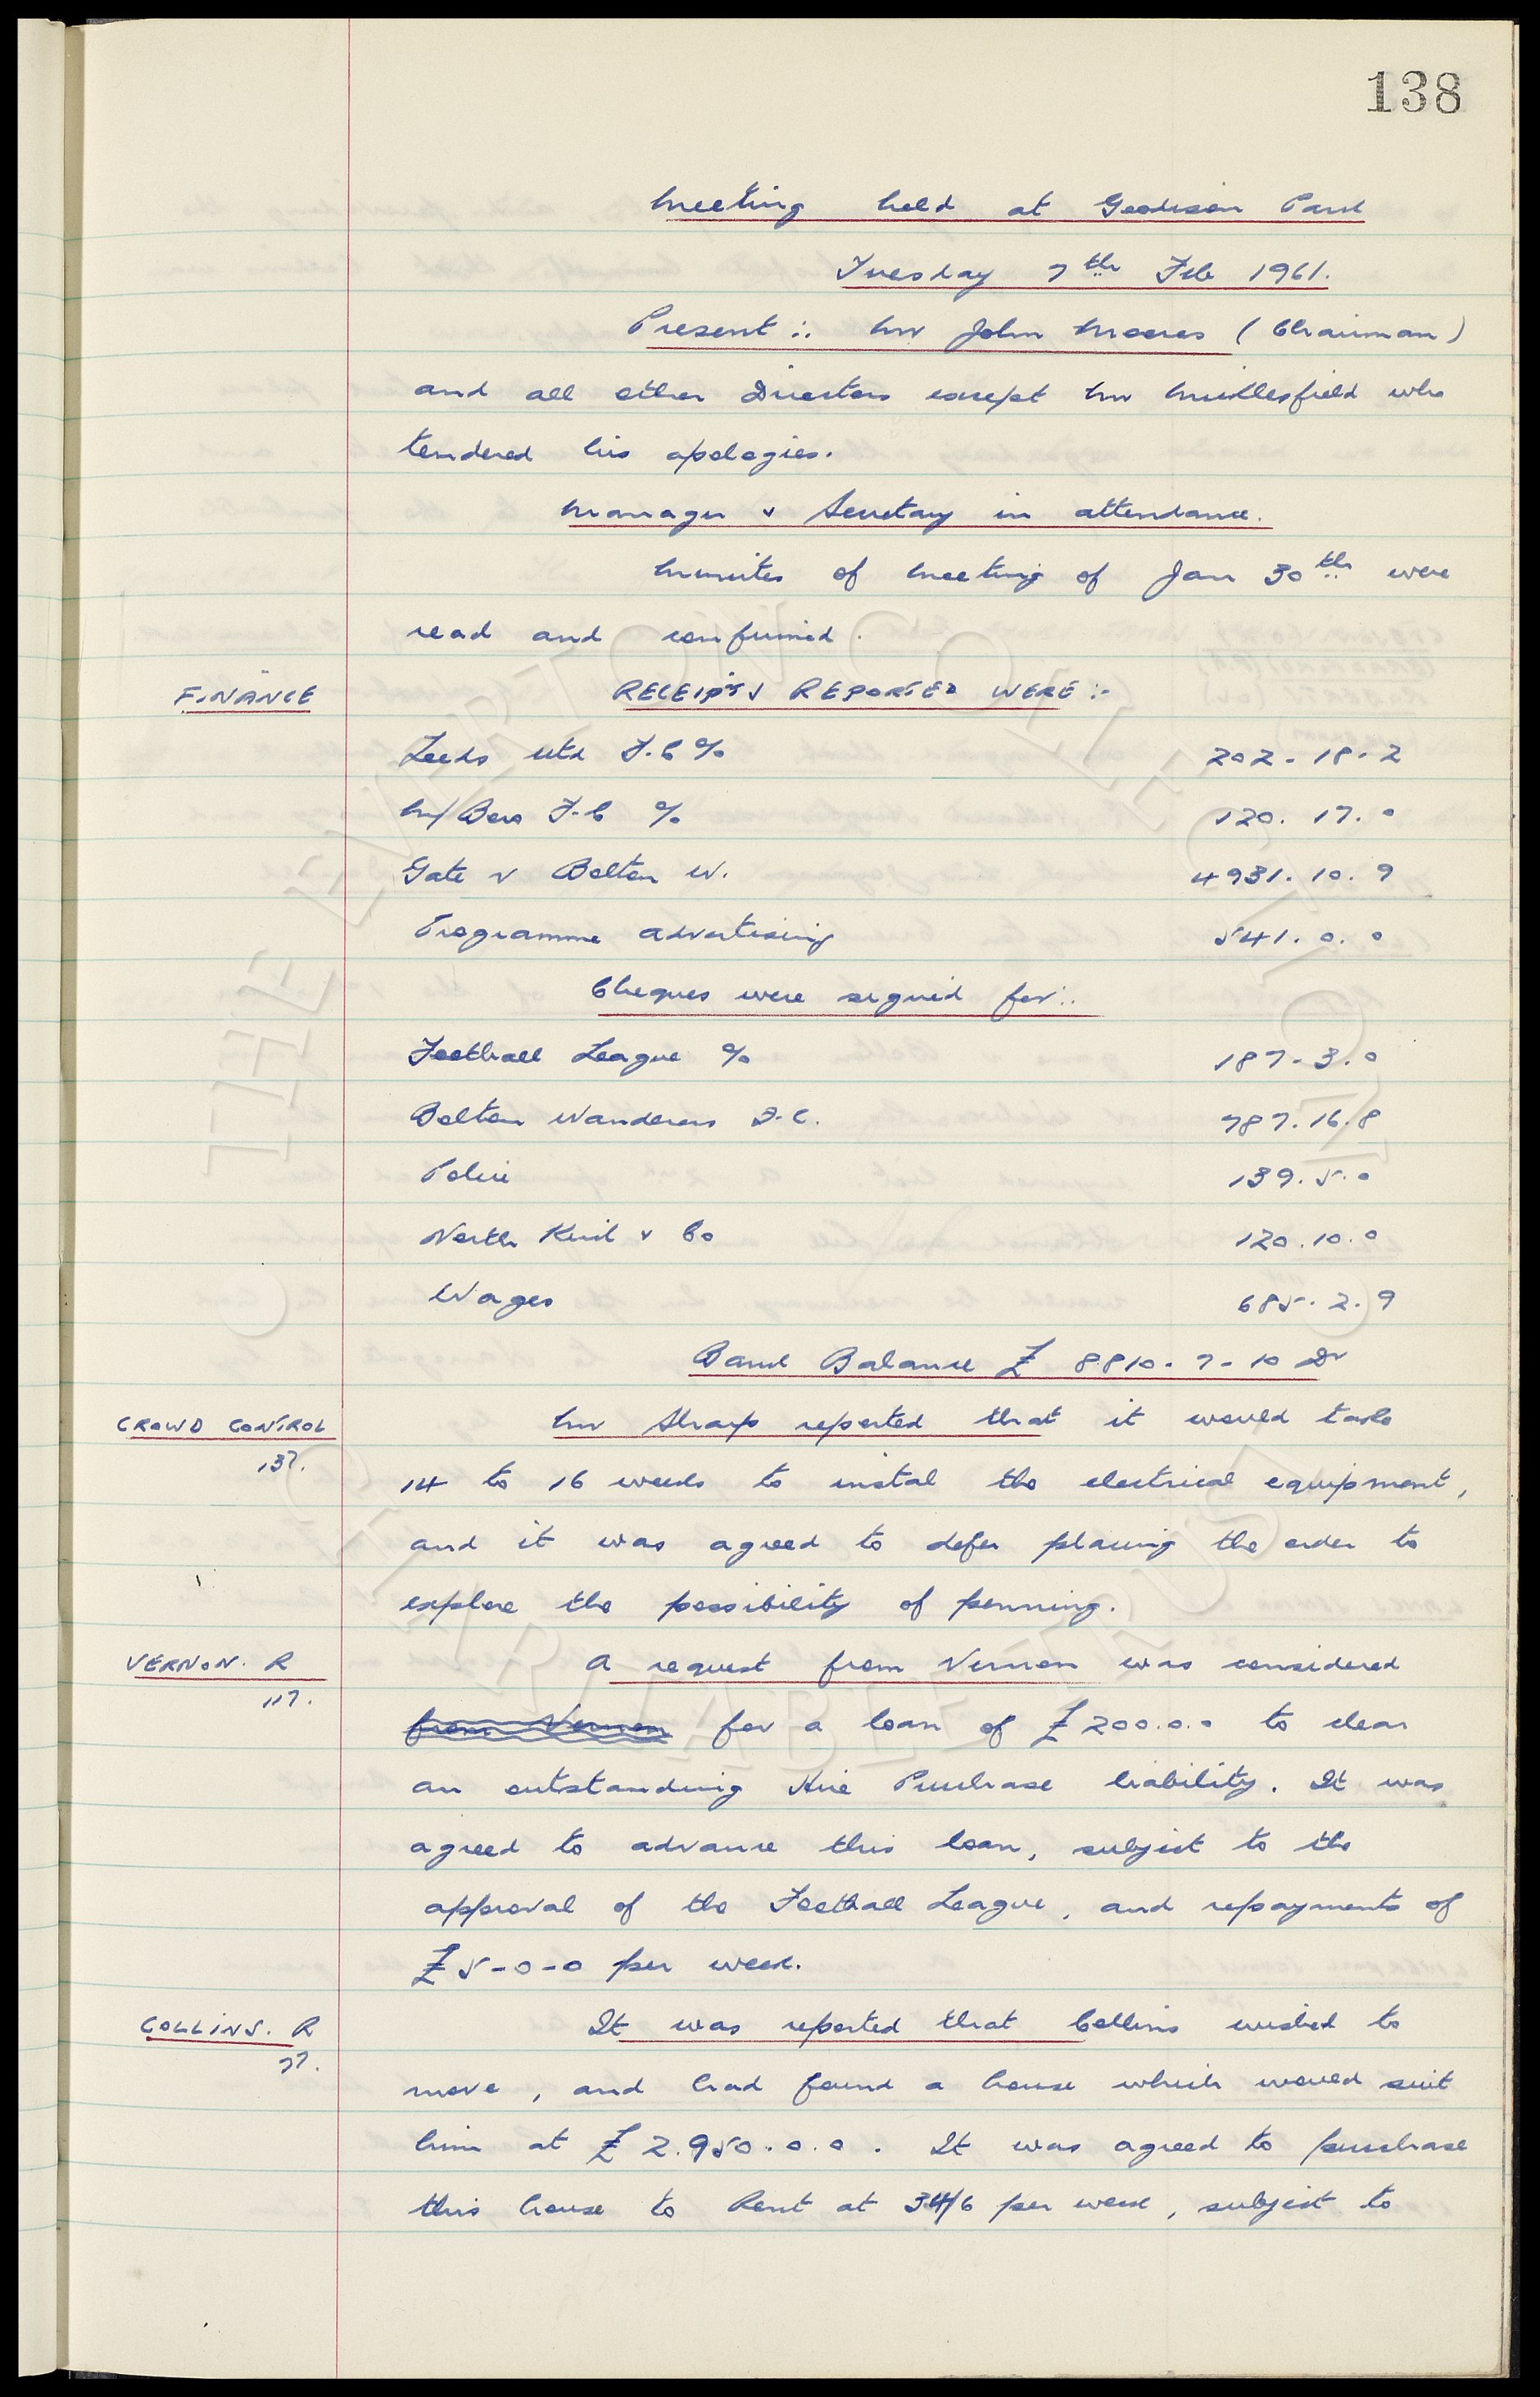 138
Meeting held at Goodison Park
Tuesday 7th Feb 1961.
Present :. Mr John Moores (Chairman)
and all other Directors except Mr Micklesfield who
tendered his apologies.
Manager & Secretary in attendance.
Minutes of Meeting of Jan 30th were
read and confirmed.
FINANCE RECEIPTS REPORTED WERE :-
Leeds Utd F.C % 202-18-2
M/Boro F.C % 120.17.0
Gate v Bolton W. 4931.10.9
Programme advertising 541.0.0
Cheques were signed for:.
Football League % 187-3.0
Bolton Wanderers F.C. 787.16.8
Police 139.5.0
North Kirk & Co 120.10.0
Wages 685.2.9
Bank Balance £ 8810-7-10 Dr
CROWD CONTROL Mr Sharp reported that it would take
137.
14 to 16 weeks to instal the electrical equipment,
and it was agreed to defer placing the order to
explore the possibility of penning.
VERNON. R A request from Vernon was considered
117.
from Vernon for a loan of £200.0.0 to clear
an outstanding Hire Purchase liability. It was
agreed to advance this loan, subject to the
approval of the Football League, and repayments of
£5-0-0 per week.
COLLINS. R It was reported that Collins wished to
77.
move, and had found a house which would suit
him at £2.950.0.0. It was agreed to purchase
this house to Rent at 34/6 per week, subject to